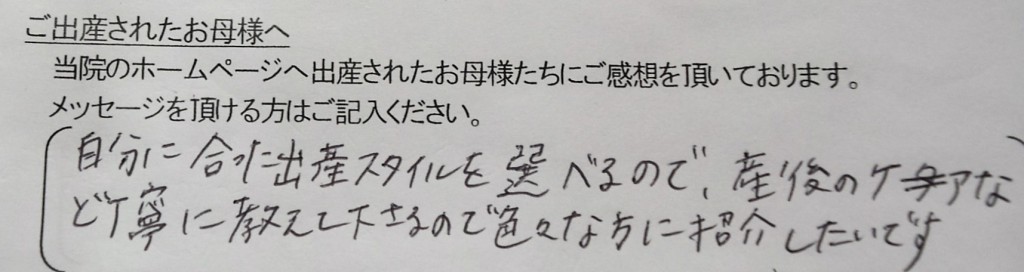 ご出産されたお母様へ
当院のホームページへ出産されたお母様たちにご感想を頂いております。
メッセージを頂ける方はご記入ください。
自分に合った出産スタイルを選べるので、産後のケアな
ど丁寧に教えて下さるので色々な方に紹介したいです